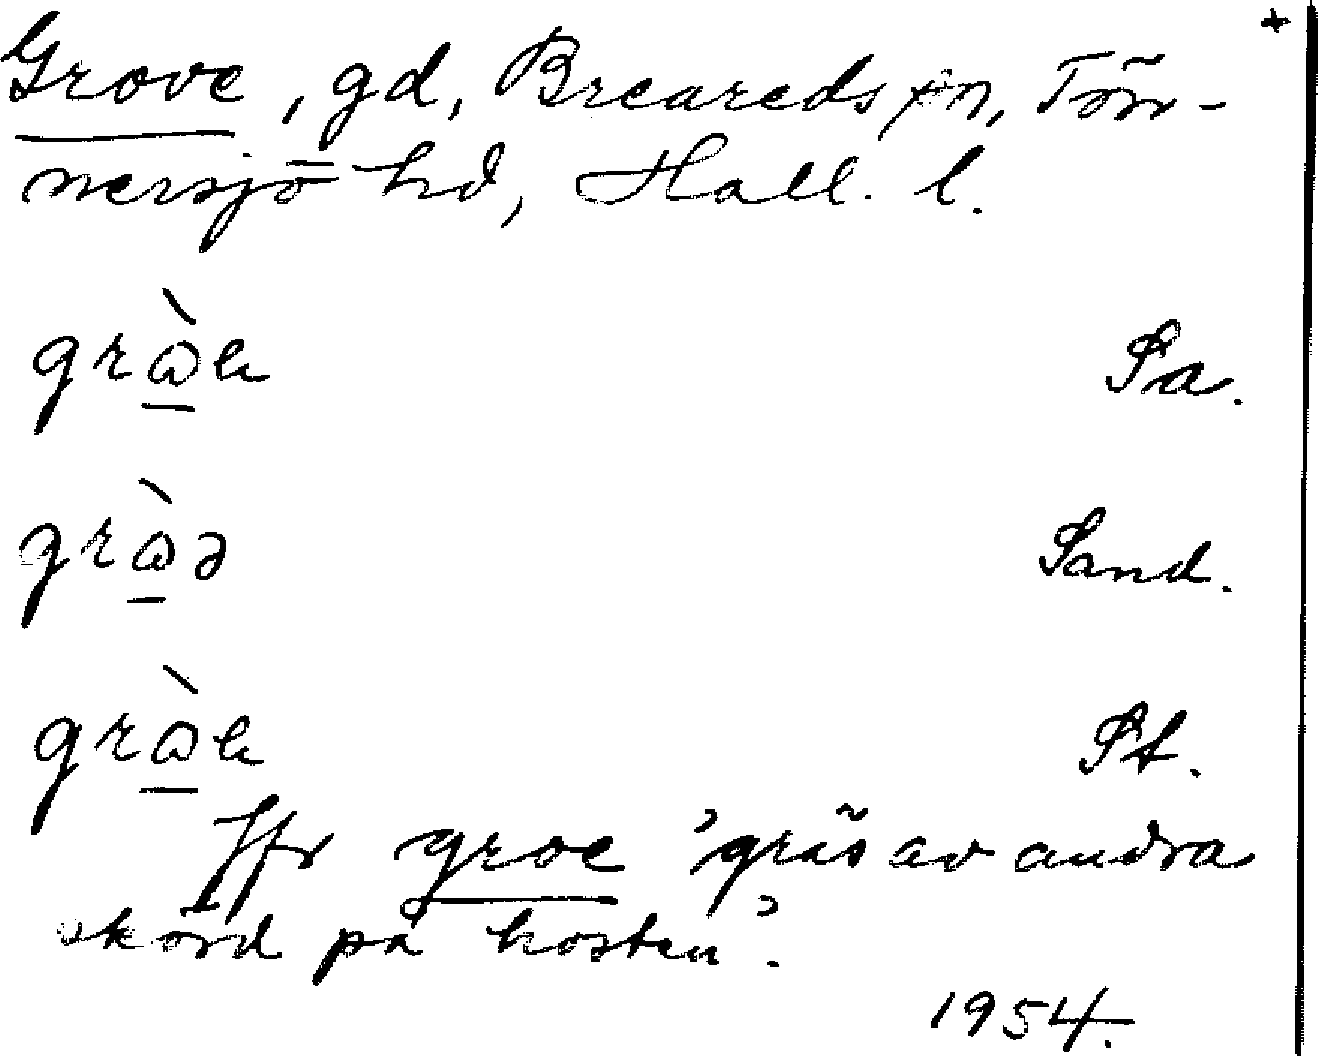 +
Grove, gd, Breareds sn, Tön-
nersjö hd, Hall. l.
grɷ̱̀ɐ Sa.
grɷ̱̀ə Sand.
grɷ̱̀ɐ St.
Jfr groe 'gräs av andra
skörd på hösten'.
1954.